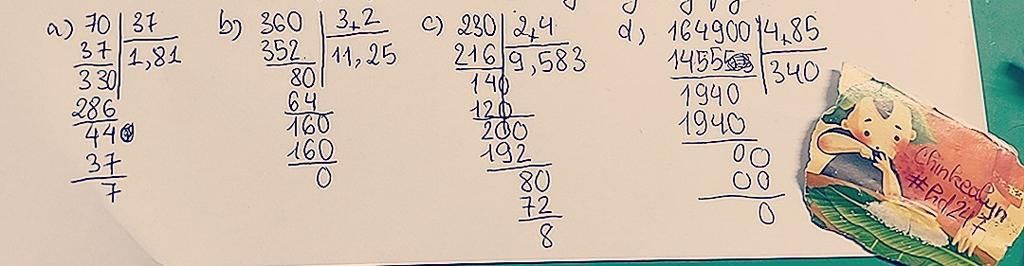 a) 70 | 37
37 | 1,81
330
286
44
37
7
b) 360 | 3,2
352 | 11,25
80
64
160
160
0
c) 230 | 2,4
216 | 9,583
140
120
200
192
80
72
8
d) 164900 | 4,85
1455 | 340
1940
1940
00
00
0
Chinkedlyn
#hd247